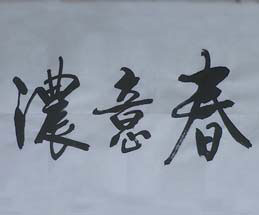 春意濃